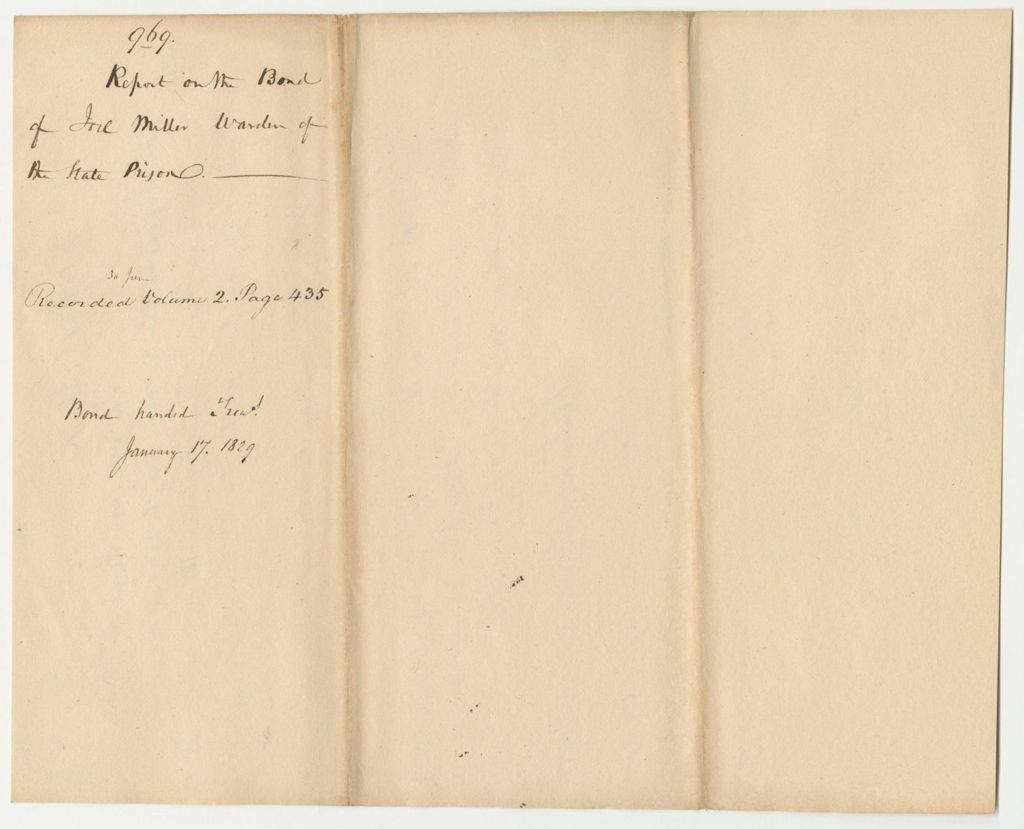 969.
Report on the Bond
of Joel Miller Warden of
the State Prison.
Recorded Volume 2. Page 435
Bond handed Treas.
January 17. 1829